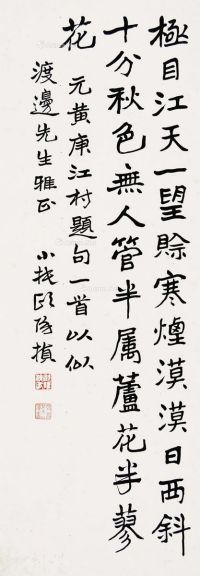 極目江天一望賒寒煙漠漠日西斜
十分秋色無人管半属蘆花半蓼
花
元黄庚江村題句一首以似
渡邊先生雅正
小拙邱